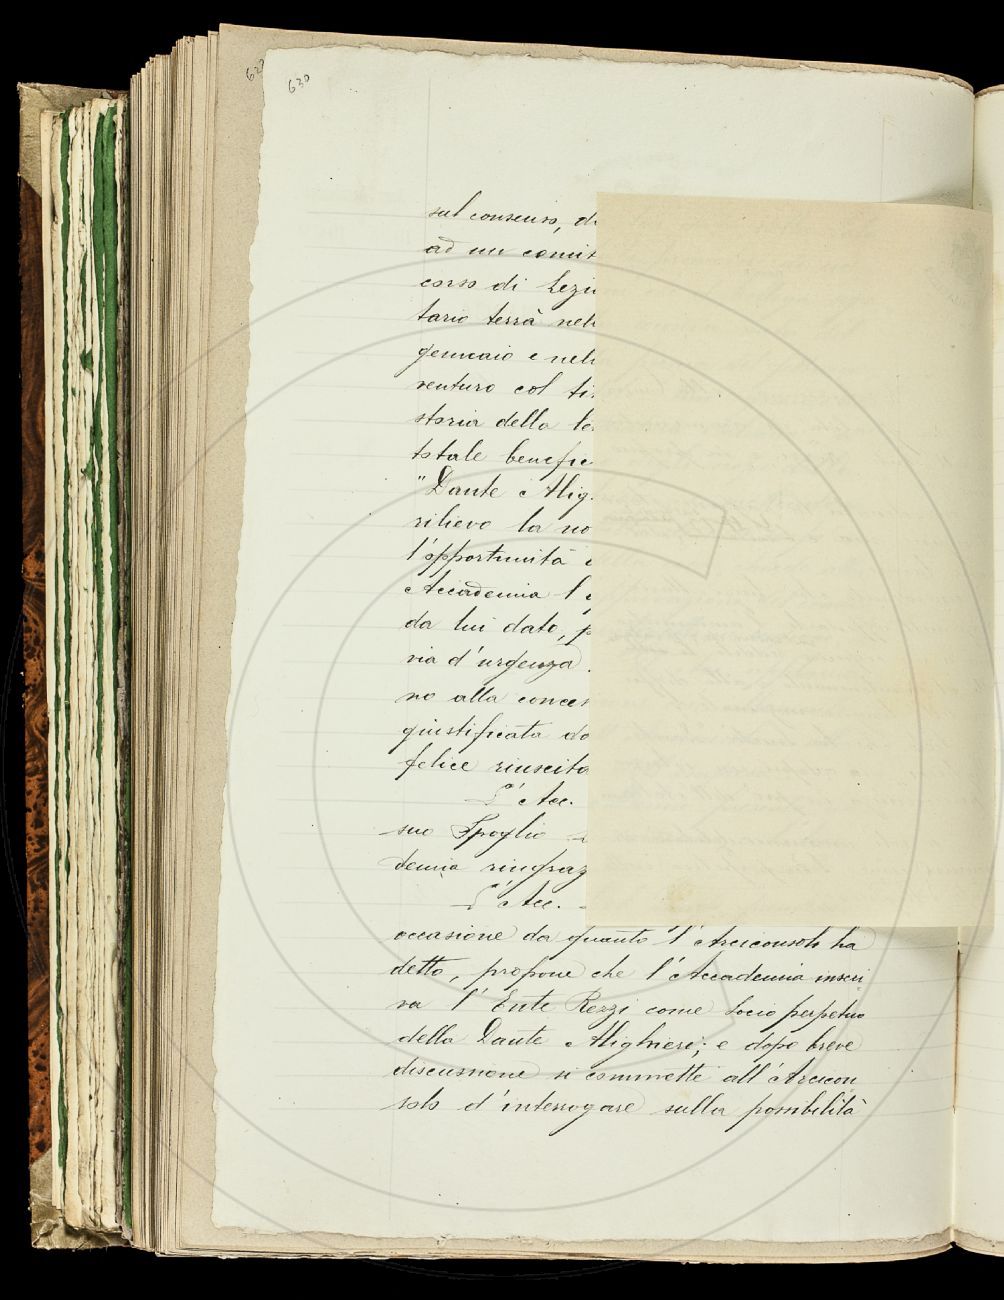 627
630
sul consenso, d
ad un comit
corso di Lezi
tario terrà nel
gennaio e nel
venturo col ti
storia della le
totale benefic
"Dante Alig
rilievo la no
l'opportunità
Accademia l'
da lui dato, p
via d'urgenza
no alla conces
giustificata da
felice riuscita
L'Acc.
suo Spoglio
demia ringraz
L'Acc.
occasione da quanto l'Arciconsolo ha
detto, propone che l'Accademia inscri-
va l'Ente Rezzi come Socio perpetuo
della Dante Alighieri; e dopo breve
discussione si commette all'Arcicon
solo d'interrogare sulla possibilità